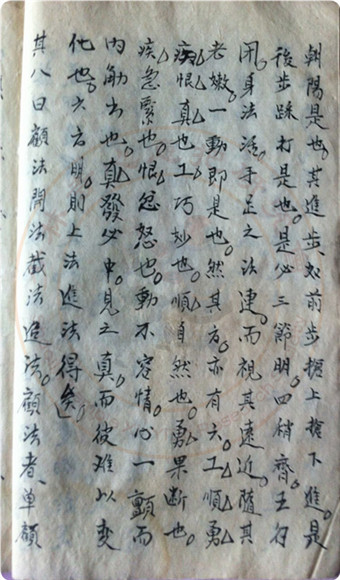 朝陽是也。其進步如前步搶上搶下進。是
後步踩打是也。是必三節明。四梢齊。五行
閉。身法活。手足之法連。而視其遠近。隨其
老嫩。一動即是也。然其方亦有六。工順勇
疾恨真也。工巧妙也。順自然也。勇果斷也。
疾急緊也。恨忿怒也。動不容情。心一顫而
內勁出也。真發必中。見之真。而彼難以變
化也。六方明。則上法進法得矣。
其八曰顧法開法截法追法。顧法者單顧